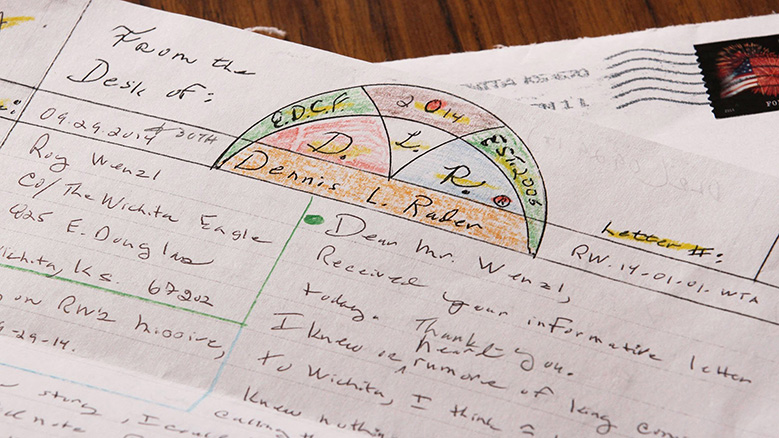 From the
Desk of:
E.D.C.F
2014
EST. 2005
D.
L.
R.®
Dennis L. Rader
09.29.2014 & 30TH
Roy Wenzl
C/O/The Wichita Eagle
825 E. Douglas
Wichita, KS. 67202
on RW2 missive,
9-29-14.
Letter #:
RW.14-01-01. WTA
Dear Mr. Wenzl,
Received your informative letter
today. Thank you.
I knew or heard rumors of King com
to Wichita, I think
knew nothin
calling th
story, I could
note